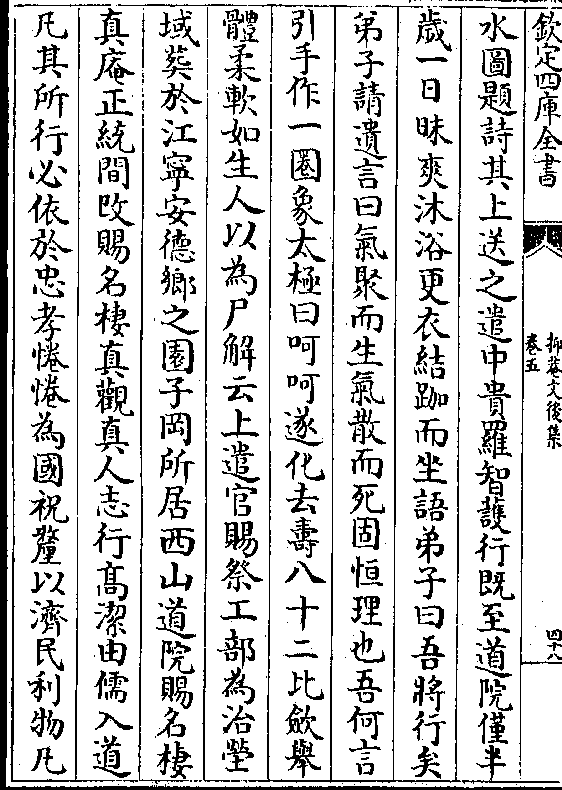 欽定四庫全書
抑菴文後集
卷五
四十八
水圖題詩其上送之遣中貴羅智護行既至道院僅半
歲一日昧爽沐浴更衣結跏而坐語弟子曰吾將行矣
弟子請遺言曰氣聚而生氣散而死固恒理也吾何言
引手作一圈象太極曰呵呵遂化去壽八十二比歛舉
體柔軟如生人以為尸解云上遣官賜祭工部為治塋
域葬於江寧安德鄉之園子岡所居西山道院賜名棲
真庵正統間改賜名棲真觀真人志行髙潔由儒入道
凡其所行必依於忠孝惓惓為國祝釐以濟民利物凡